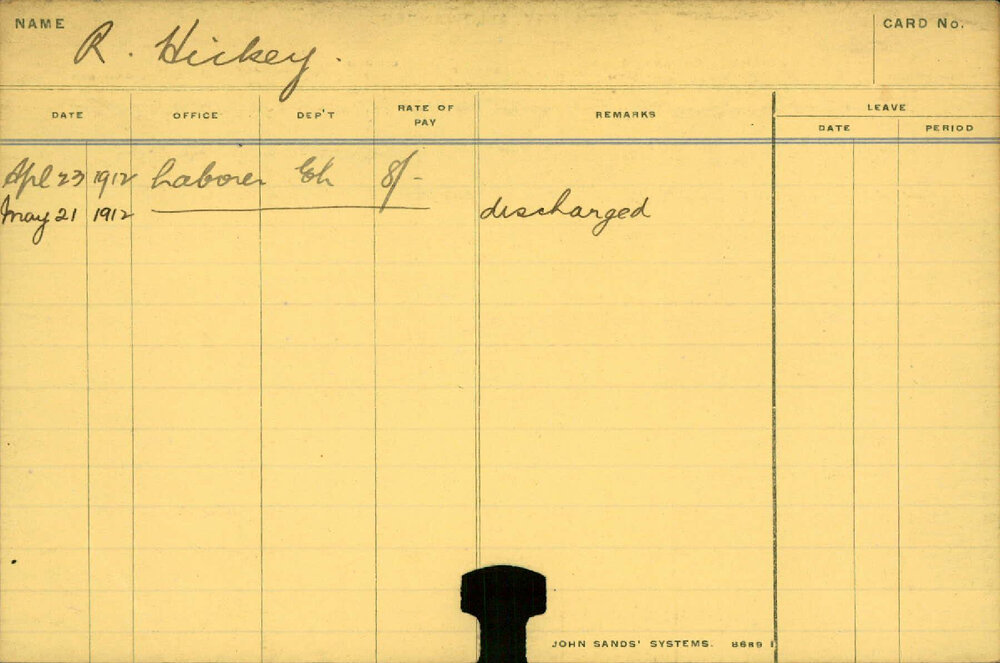 NAME R. Hickey. CARD No.
DATE OFFICE DEP'T RATE OF PAY REMARKS LEAVE
DATE PERIOD
Apl 23 1912 Laborer 8/-
May 21 1912 discharged
JOHN SANDS' SYSTEMS. 8689